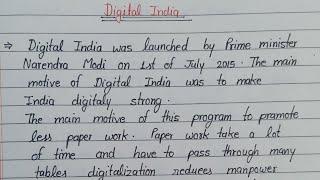 Digital India.
⇒ Digital India was launched by Prime minister
Narendra Modi on 1st of July 2015. The main
motive of Digital India was to make
India digitaly strong.
The main motive of this program to pramote
less paper work. Paper work take a lot
of time and have to pass through many
tables digitalization reduces manpower